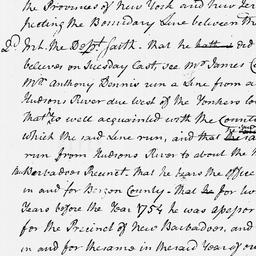 the Provinces of New York and New Jer
specting the Boundary Line between th
2d Int. the Dept. saith. That he hath did
believes on Tuesday last, see Mr. James C
Mr. Anthony Dennis run a Line from a
Hudsons River due west of the Yonkers
That he is well acquainted with the Count
which the said Line run, and that
run from Hudsons River to about the
Barbadoes Precinct. That he bears the Office
in and for Bergen County. That he for two
Years before the Year 1754 he was assessor
for the Precinct of New Barbadoes, and
in and for the same in the said Year of our